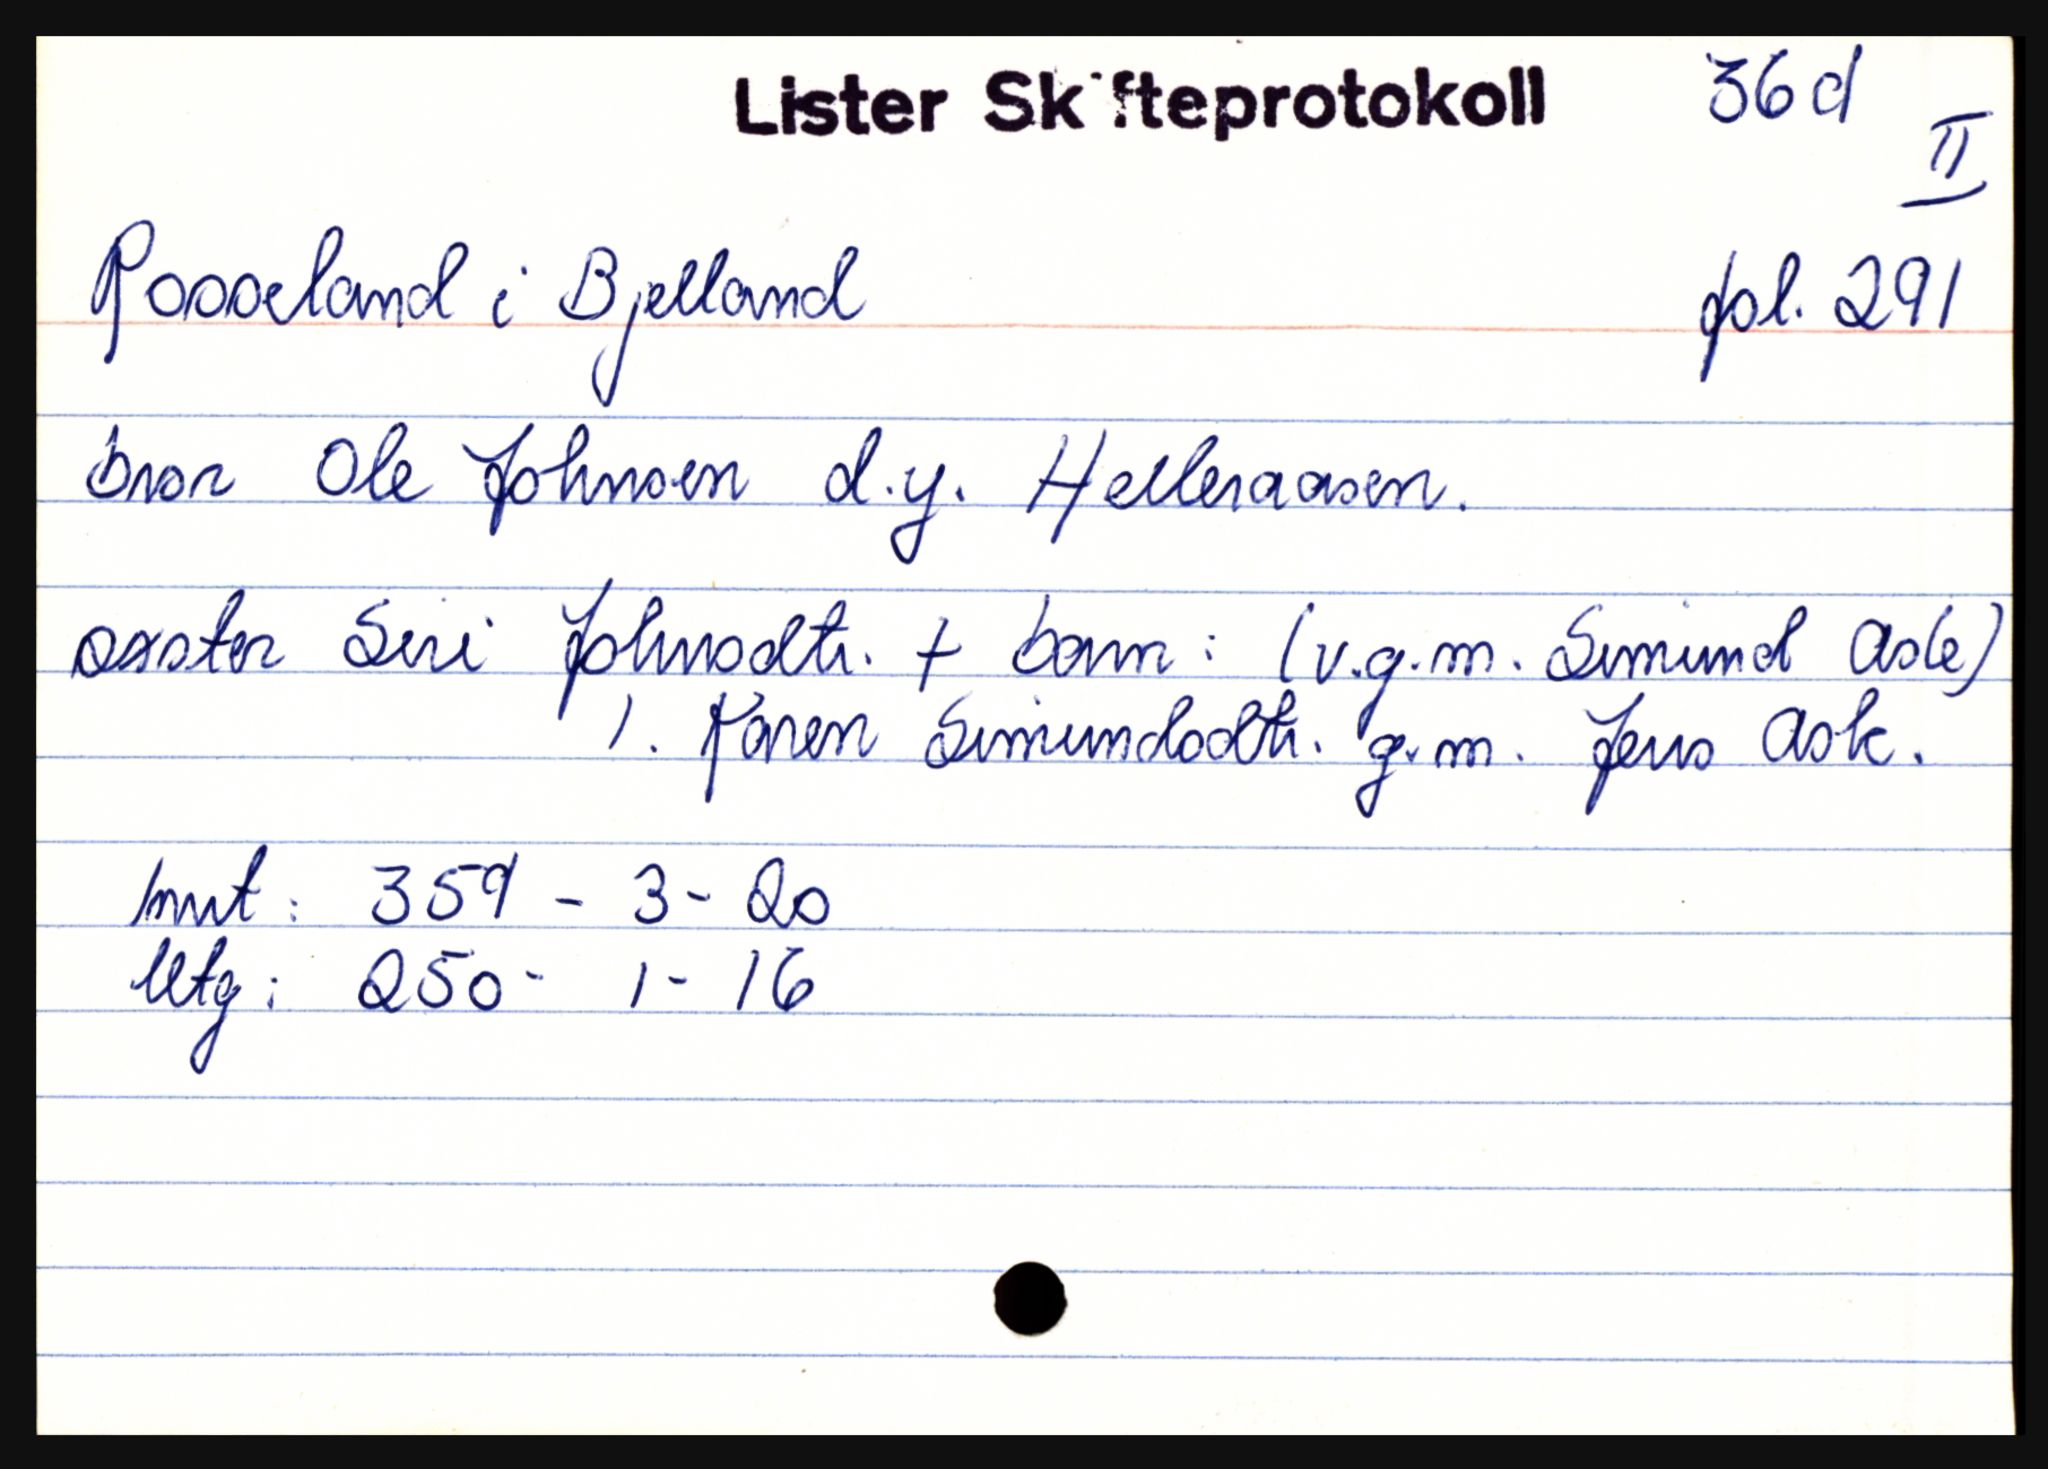 Lister Skifteprotokoll 36d
II
Rosseland i Bjelland fol. 291
bror Ole Johnsen d.y. Helleraasen.
søster Siri Johnsdtr. + barn: (v.g.m. Simund Ask)
1. Karen Simundsdtr. g.m. Jens Ask.
Innt: 359 - 3 - 20
Utg: 250 - 1 - 16